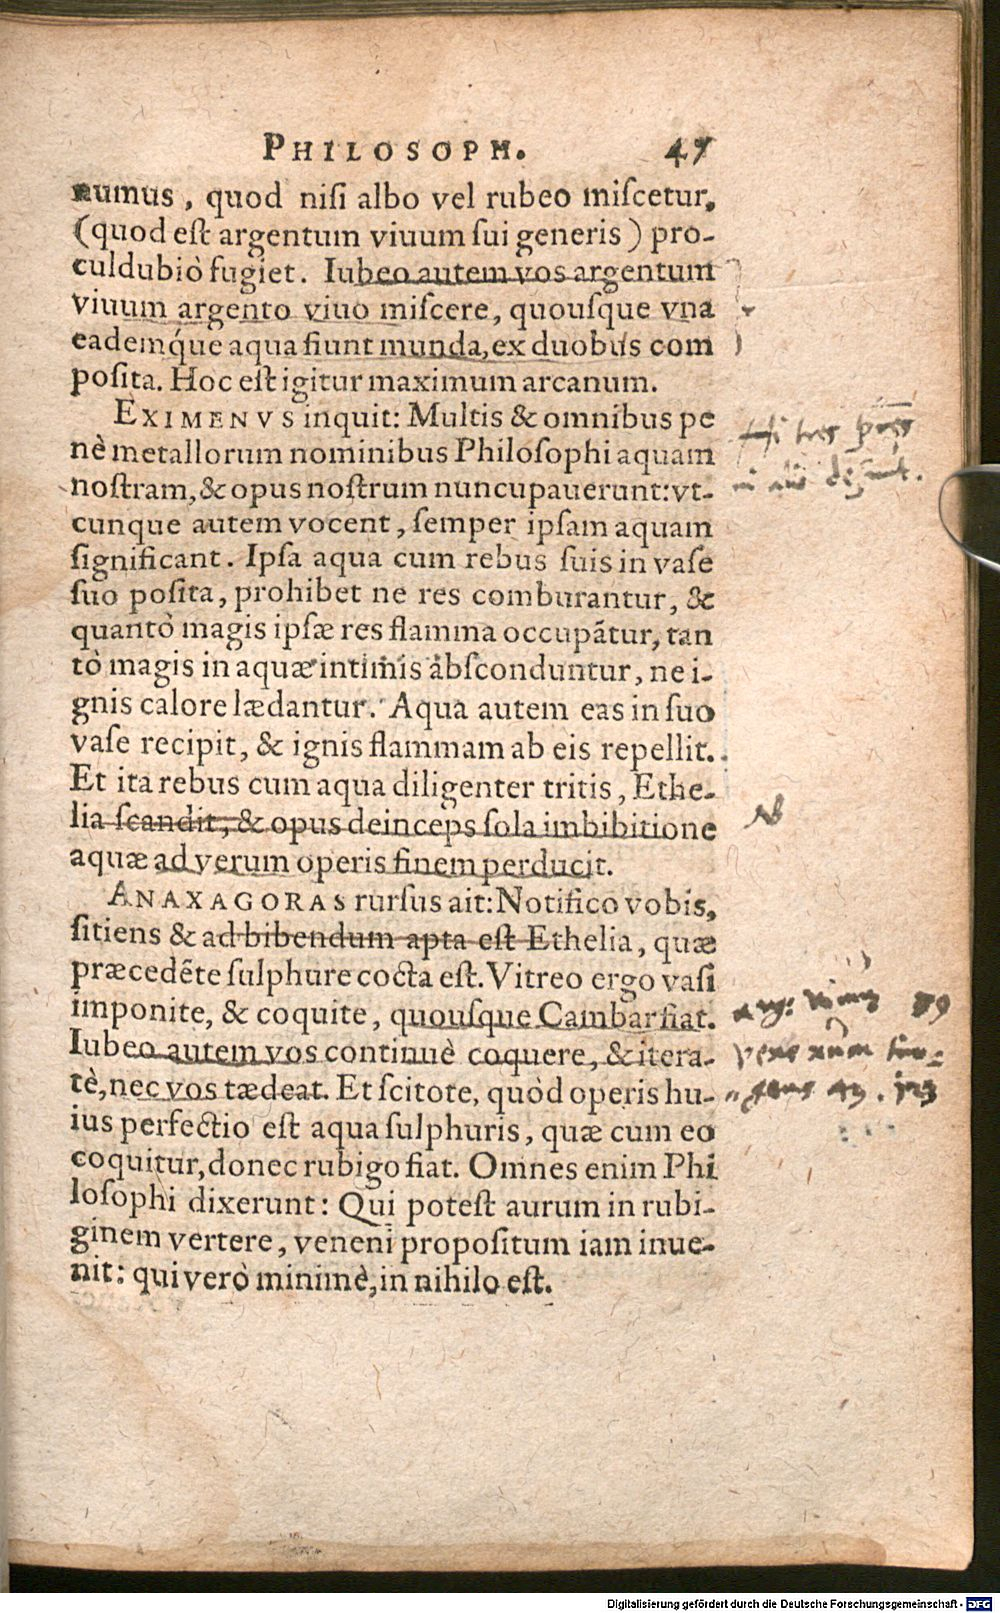 PHILOSOPH. 47
numus, quod niſi albo vel rubeo miſcetur,
(quod eſt argentum viuum ſui generis) pro-
culdubiò fugiet. Iubeo autem vos argentum
viuum argento viuo miſcere, quouſque vna
eademq́ue aqua fiunt munda, ex duobus com
poſita. Hoc eſt igitur maximum arcanum.
EXIMENVS inquit: Multis & omnibus pe
nè metallorum nominibus Philoſophi aquam
noſtram, & opus noſtrum nuncupauerunt: vt-
cunque autem vocent, ſemper ipſam aquam
ſignificant. Ipſa aqua cum rebus ſuis in vaſe
ſuo poſita, prohibet ne res comburantur, &
quantò magis ipſæ res flamma occupãtur, tan
tò magis in aquæ intimis abſconduntur, ne i-
gnis calore lædantur. Aqua autem eas in ſuo
vaſe recipit, & ignis flammam ab eis repellit.
Et ita rebus cum aqua diligenter tritis, Ethe-
lia ſcandit, & opus deinceps ſola imbibitione
aquæ ad verum operis finem perducit.
ANAXAGORAS rurſus ait: Notifico vobis,
ſitiens & ad bibendum apta eſt Ethelia, quæ
præcedẽte ſulphure cocta eſt. Vitreo ergo vaſi
imponite, & coquite, quouſque Cambar fiat.
Iubeo autem vos continuè coquere, & itera-
tè, nec vos tædeat. Et ſcitote, quòd operis hu-
ius perfectio eſt aqua ſulphuris, quæ cum eo
coquitur, donec rubigo fiat. Omnes enim Phi
loſophi dixerunt: Qui poteſt aurum in rubi-
ginem vertere, veneni propoſitum iam inue-
nit: qui verò minimè, in nihilo eſt.
Hi tres
NB
Digitalisierung gefördert durch die Deutsche Forschungsgemeinschaft - DFG